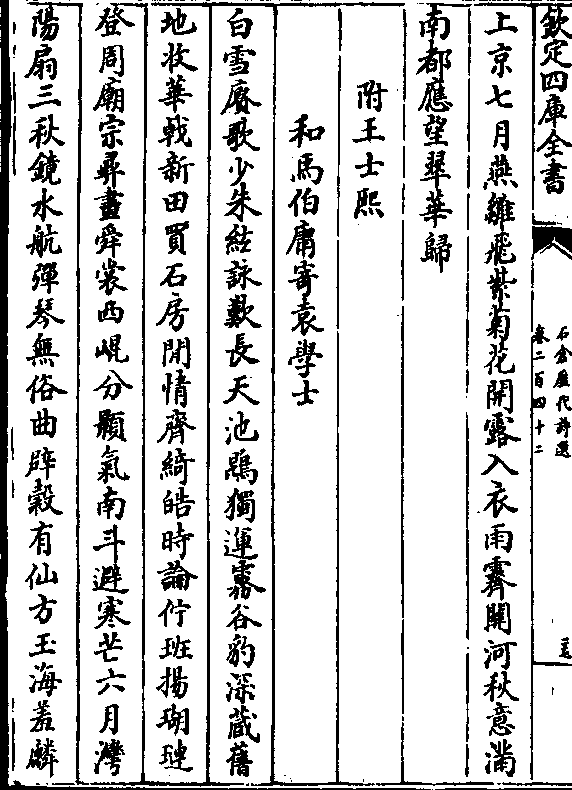 欽定四庫全書
石倉歷代詩選
卷二百四十二
上京七月燕雛飛紫菊花開露入衣雨霽關河秋意滿
南都應望翠華歸
附王士熙
和馬伯庸寄袁學士
白雪賡歌少朱絃詠歎長天池鵾獨運霧谷豹深藏舊
地妝華戟新田買石房閒情齊綺皓時論佇班揚瑚璉
登周廟宗彝畫舜裳西崐分顥氣南斗避寒芒六月灣
陽扇三秋鏡水航彈琴無俗曲辟穀有仙方玉海羞麟